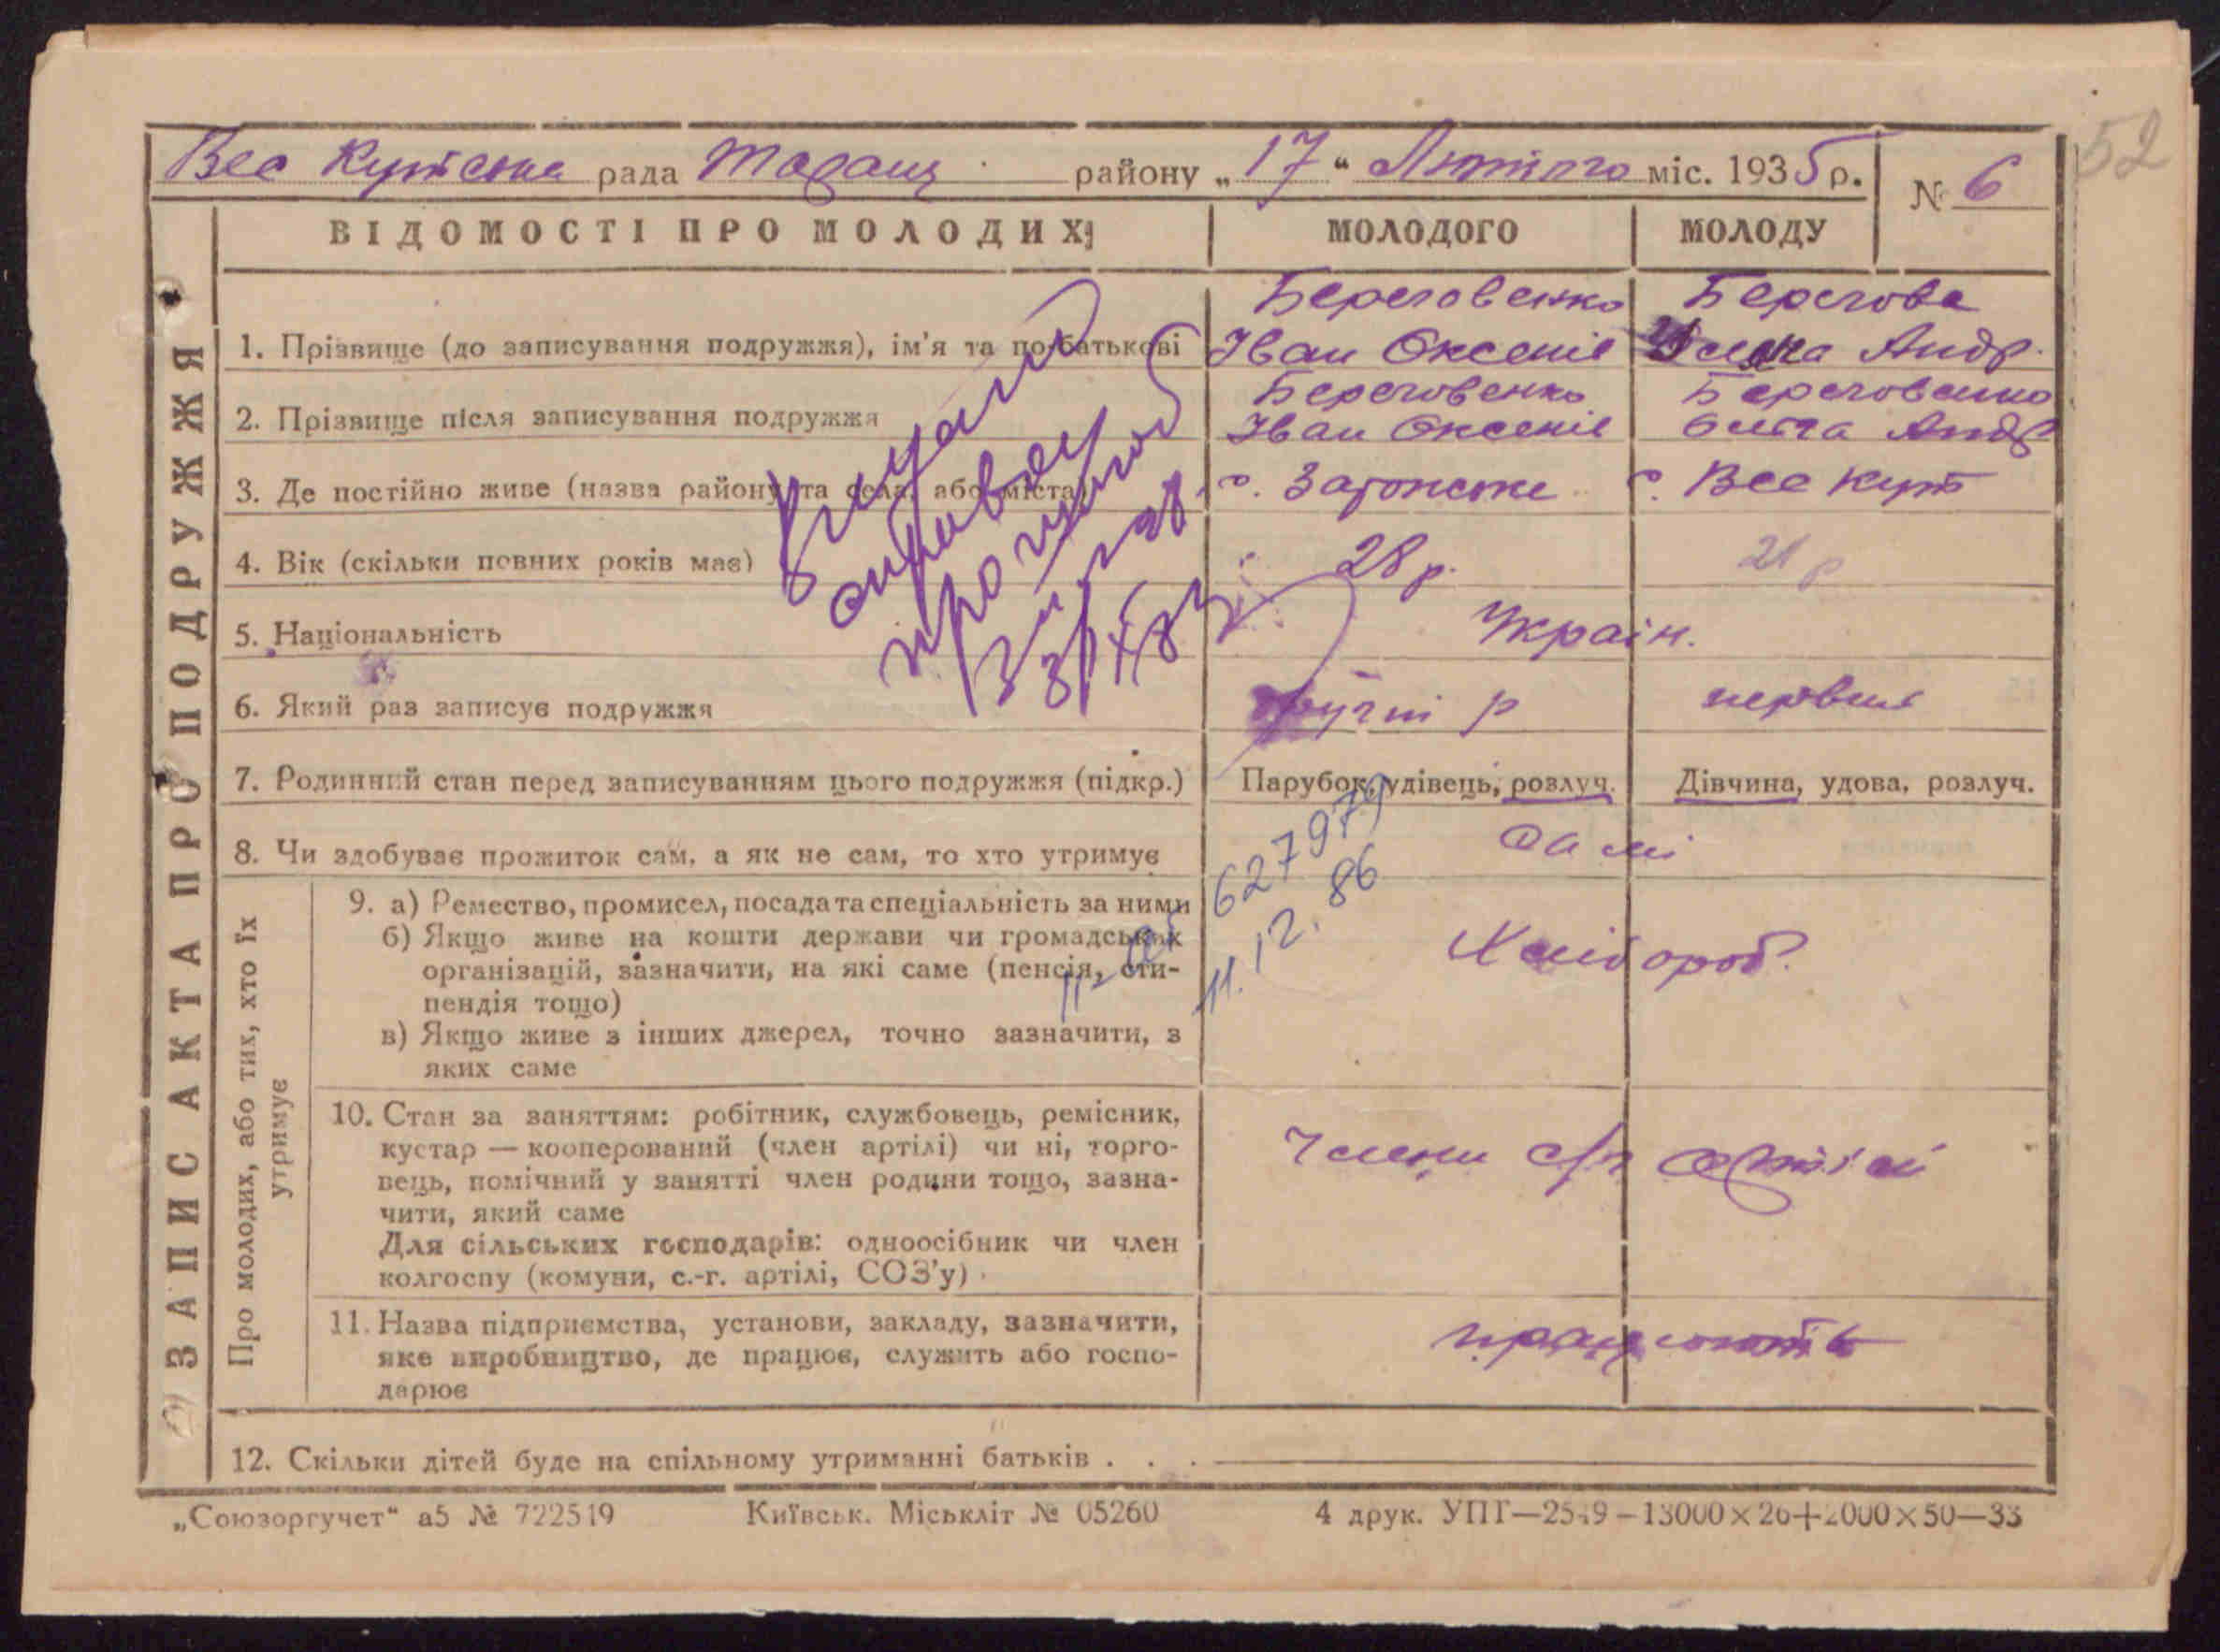 52
Вел Кутська рада Таращ. району „17“ Лютого міс. 1935 р. № 6
ВІДОМОСТІ ПРО МОЛОДИХ МОЛОДОГО МОЛОДУ
ЗАПИС АКТА ПРО ПОДРУЖЖЯ
Береговенко Берегова
1. Прізвище (до записування подружжя), ім'я та по батькові Іван Оксенів Андр.
Береговенко Береговенко
2. Прізвище після записування подружжя Іван Оксенів Андр
3. Де постійно живе (назва району та села, або міста) с. с. Вел Кут
4. Вік (скільки повних років має) 28 р. 21 р
5. Національність Україн.
6. Який раз записує подружжя р первий
7. Родинний стан перед записуванням цього подружжя (підкр.) Парубок, удівець, розлуч. Дівчина, удова, розлуч.
8. Чи здобуває прожиток сам, а як не сам, то хто утримує самі
Про молодих, або тих, хто їх
утримує
9. а) Ремество, промисел, посада та спеціальність за ними
б) Якщо живе на кошти держави чи громадських
організацій, зазначити, на які саме (пенсія, сти-
пендія тощо)
в) Якщо живе з інших джерел, точно зазначити, з
яких саме
Хлібороб.
627979
11.12.86
10. Стан за заняттям: робітник, службовець, ремісник,
кустар — кооперований (член артілі) чи ні, торго-
вець, помічний у занятті член родини тощо, зазна-
чити, який саме
Для сільських господарів: одноосібник чи член
колгоспу (комуни, с.-г. артілі, СОЗ'у)
Члени с/г артілі
11. Назва підприємства, установи, закладу, зазначити,
яке виробництво, де працює, служить або госпо-
дарює
працюють в
12. Скільки дітей буде на спільному утриманні батьків . . .
„Союзоргучет“ а5 № 722519 Київськ. Міськліт № 05260 4 друк. УПТ—2549—13000×26+2000×50—33